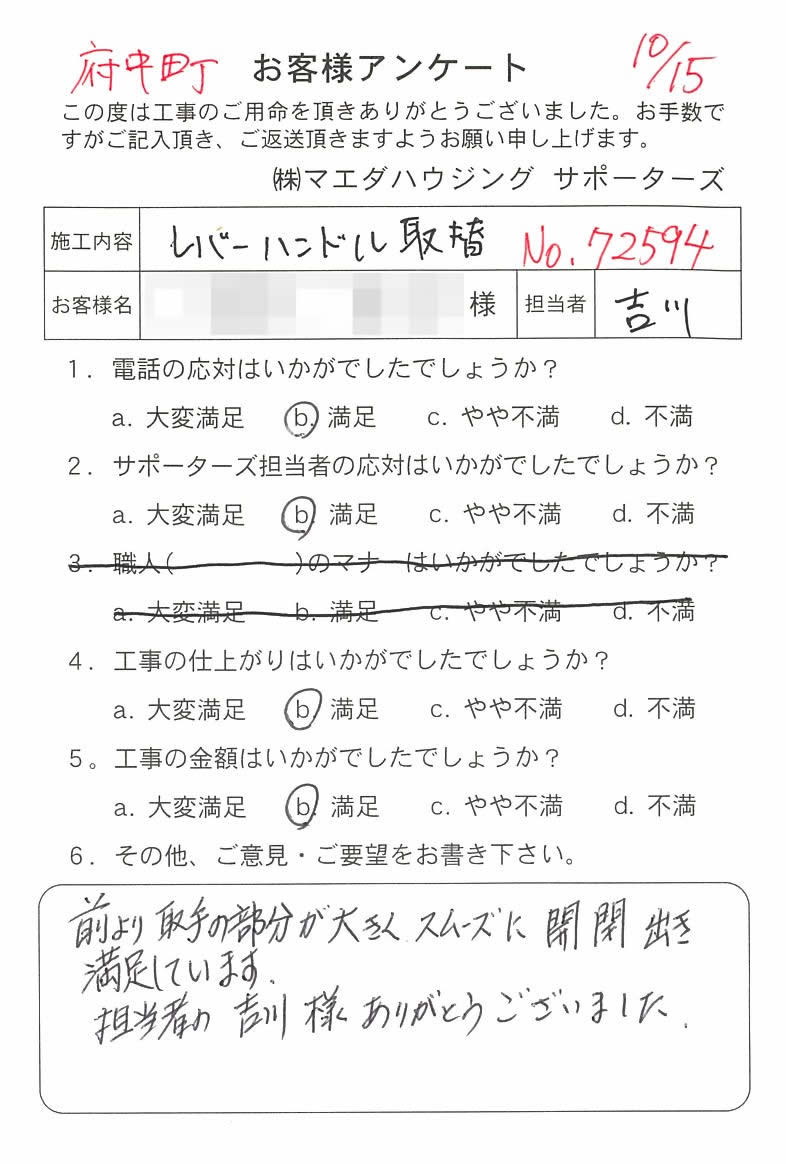 府中町 お客様アンケート 10/15
この度は工事のご用命を頂きありがとうございました。お手数で
すがご記入頂き、ご返送頂きますようお願い申し上げます。
㈱マエダハウジング サポーターズ
施工内容 レバーハンドル取替 No.72594
お客様名 様 担当者 吉川
1. 電話の応対はいかがでしたでしょうか?
a. 大変満足 b. 満足 c. やや不満 d. 不満
2. サポーターズ担当者の応対はいかがでしたでしょうか?
a. 大変満足 b. 満足 c. やや不満 d. 不満
3. 職人( )のマナーはいかがでしたでしょうか?
a. 大変満足 b. 満足 c. やや不満 d. 不満
4. 工事の仕上がりはいかがでしたでしょうか?
a. 大変満足 b. 満足 c. やや不満 d. 不満
5。工事の金額はいかがでしたでしょうか?
a. 大変満足 b. 満足 c. やや不満 d. 不満
6. その他、ご意見・ご要望をお書き下さい。
前より取手の部分が大きくスムーズに開閉出き
満足しています.
担当者の吉川様ありがとうございました.